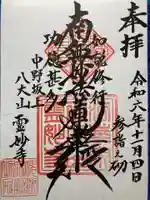 奉拝
令和六年十月四日
参詣之砌
如説修行
南無妙法蓮華経
功徳甚多
中野坂上
八大山 霊妙寺